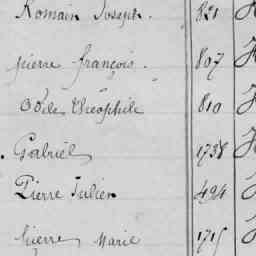 Romain Joseph. 821
pierre françois. 807
Odile Théophile 810
Gabriël 1738
Pierre Julien 494
pierre Marie 1715